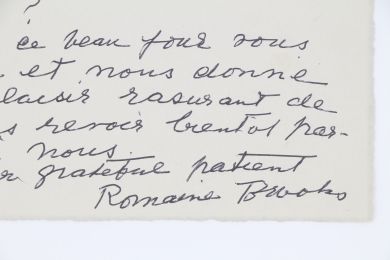 ?
ce beau jour vous
et nous donne
laisir rasurant de
s revoir bientot par-
nous.
grateful patient
Romaine Brooks